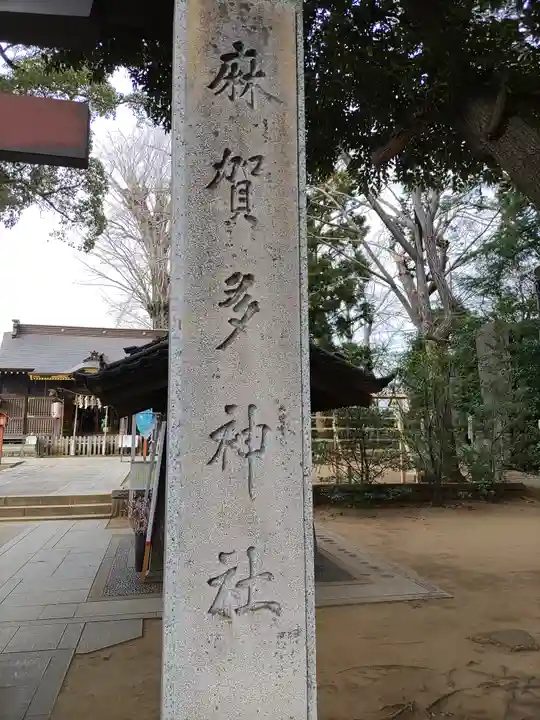 麻賀多神社